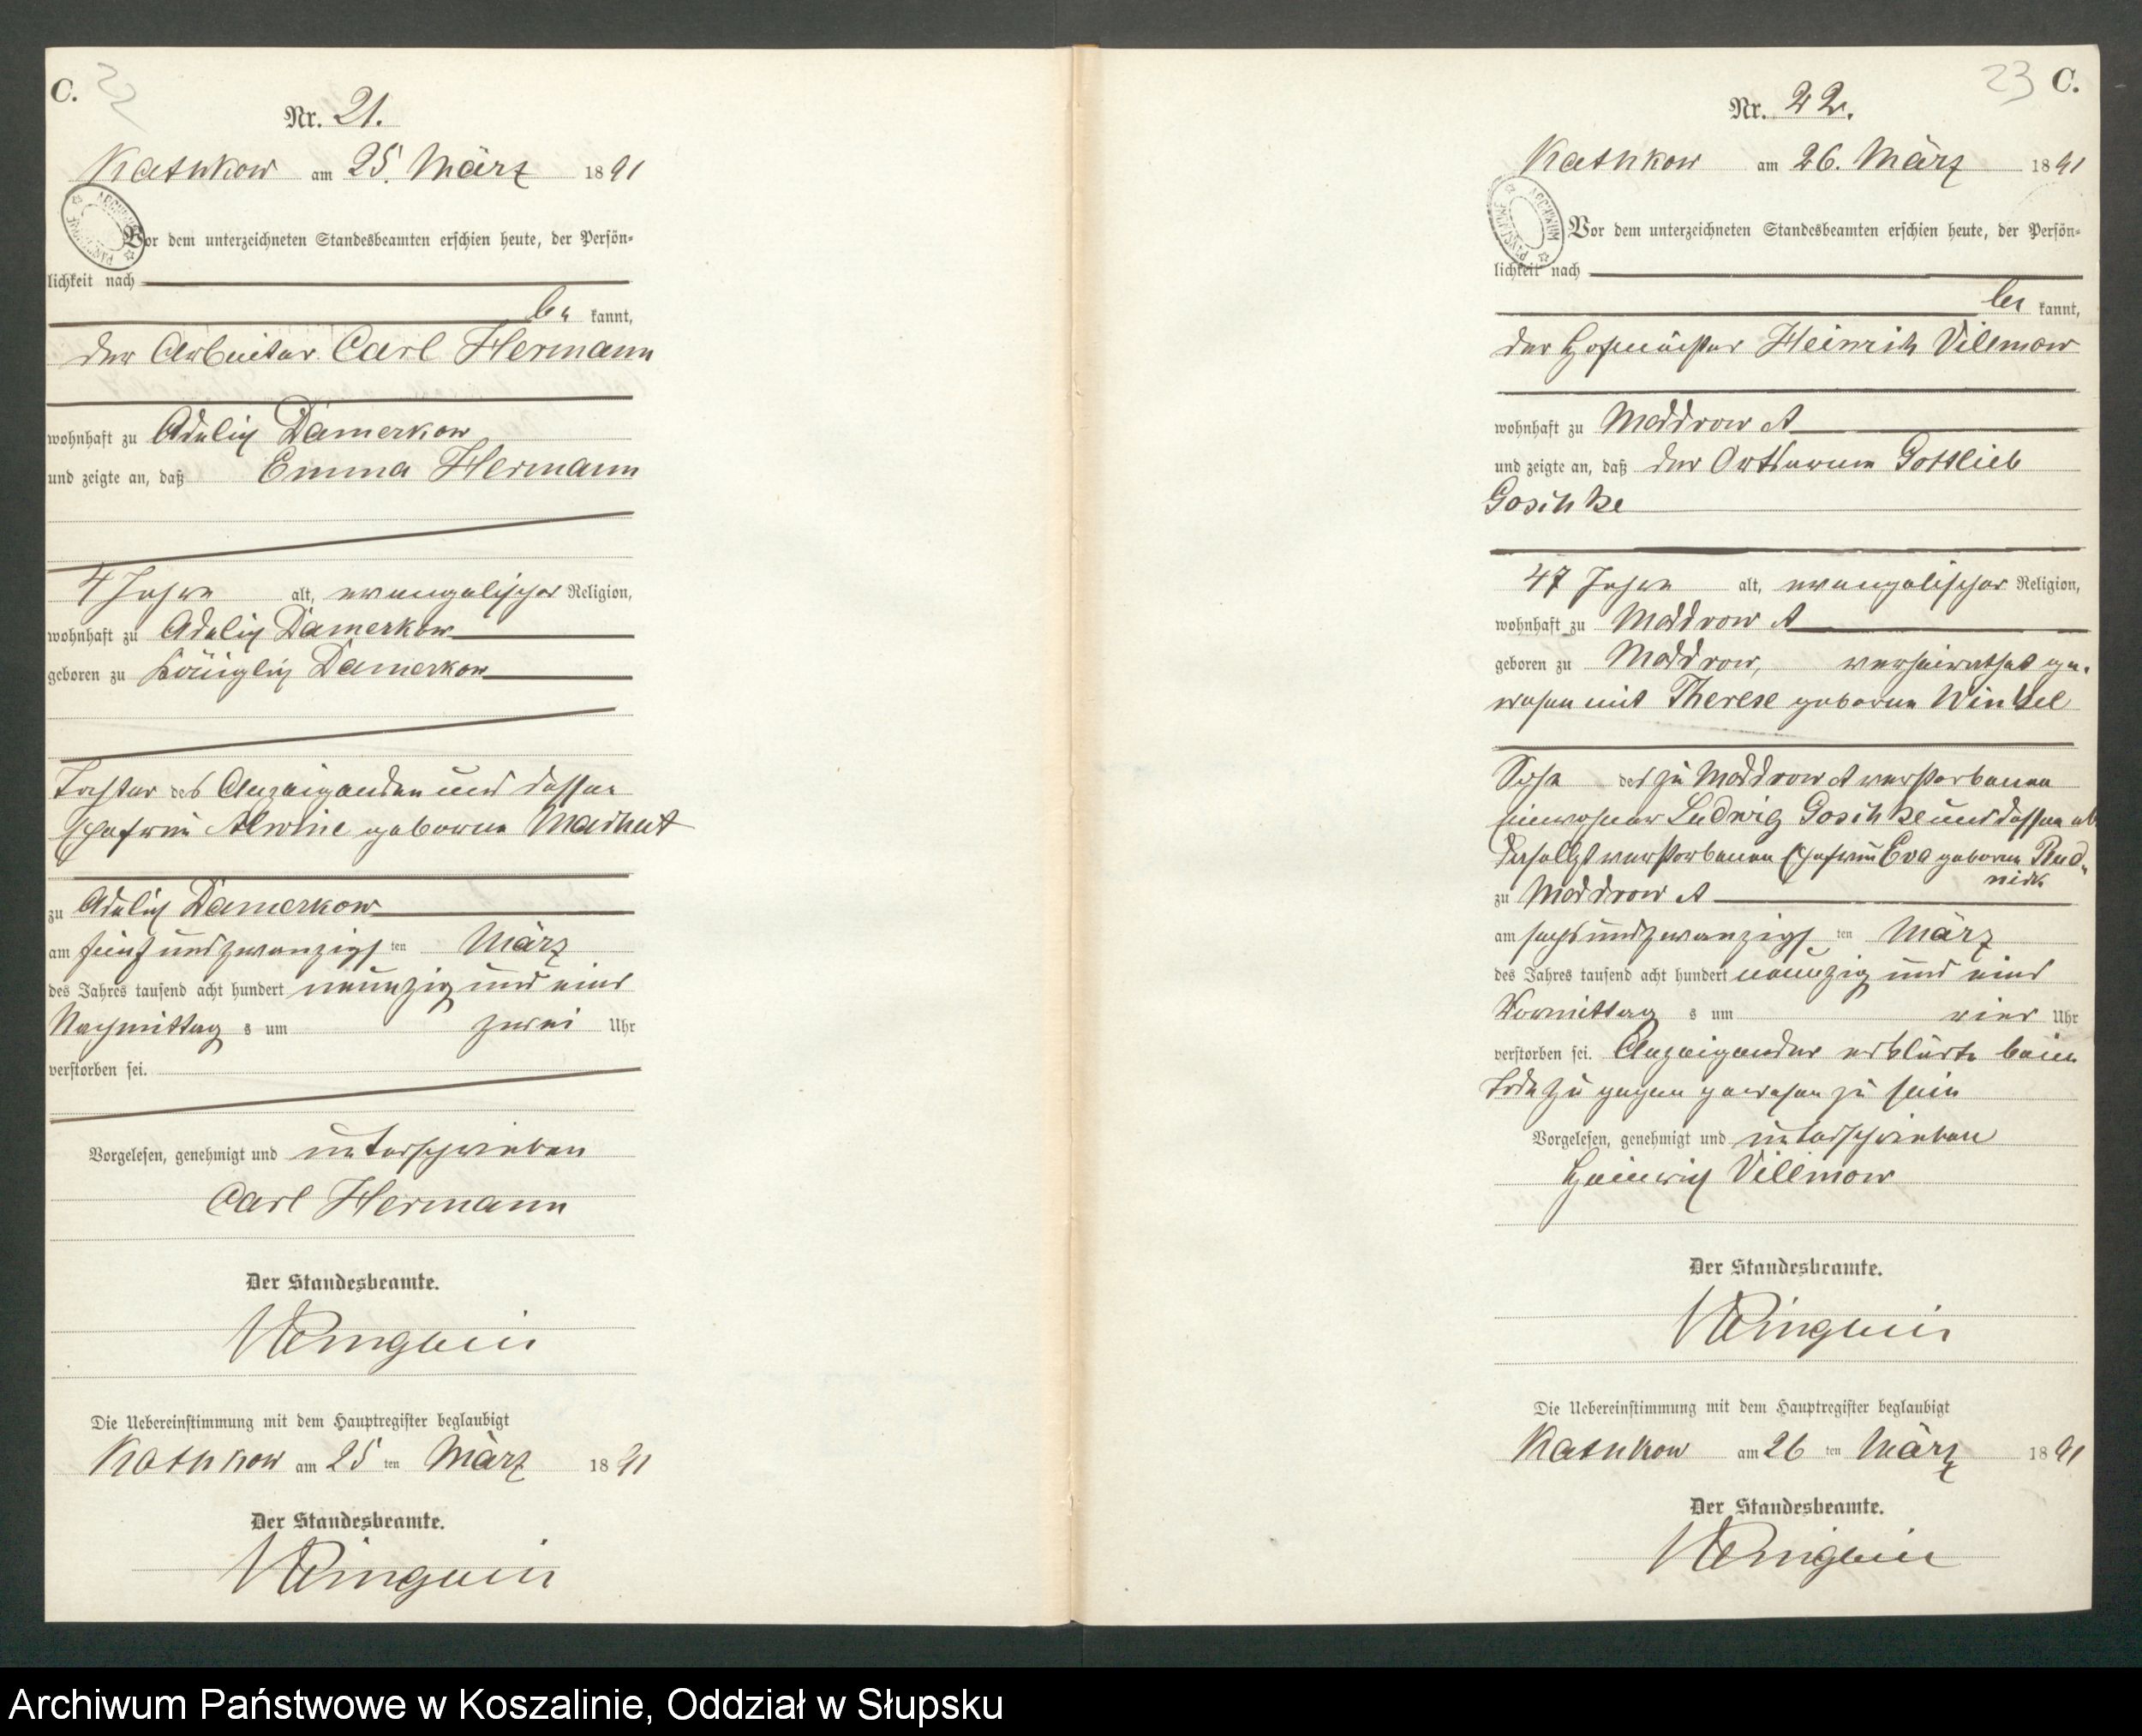 C.
22
Nr. 21.
Kathkow am 25. März 1891
Vor dem unterzeichneten Standesbeamten erschien heute, der Persön-
lichkeit nach
be kannt,
der Arbeiter Carl Hermann
wohnhaft zu Adelig Damerkow
und zeigte an, daß Emma Hermann
4 Jahre alt, evangelischer Religion,
wohnhaft zu Adelig Damerkow
geboren zu Königlich Damerkow
Tochter des Anzeigenden und dessen
Ehefrau Alwine geborene
zu Adelig Damerkow
am fünf und zwanzigsten März
des Jahres tausend acht hundert neunzig und eins
Nachmittag s um zwei Uhr
verstorben sei.
Vorgelesen, genehmigt und unterschrieben
Carl Hermann
Der Standesbeamte.
Die Uebereinstimmung mit dem Hauptregister beglaubigt
Kathkow am 25 ten März 1891
Der Standesbeamte.
23 C.
Nr. 22.
Kathkow am 26. März 1891
Vor dem unterzeichneten Standesbeamten erschien heute, der Persön-
lichkeit nach
be kannt,
der Hofmeister Heinrich Villmow
wohnhaft zu Moddrow A
und zeigte an, daß der Ortsarme Gottlieb
Goschke
47 Jahre alt, evangelischer Religion,
wohnhaft zu Moddrow A
geboren zu Moddrow, verheirathet ge-
wesen mit Therese geborene Winkel
Sohn des zu Moddrow A verstorbenen
Einwohner Ludwig Goschke und dessen eb
daselbst verstorbenen Ehefrau Eva geborene Rud-
nick
zu Moddrow A
am sechs und zwanzigsten März
des Jahres tausend acht hundert neunzig und eins
Vormittag s um vier Uhr
verstorben sei. Anzeigender erklärte beim
Tode zu gegen gewesen zu sein
Vorgelesen, genehmigt und unterschrieben
Heinrich Villmow
Der Standesbeamte.
Die Uebereinstimmung mit dem Hauptregister beglaubigt
Kathkow am 26 ten März 1891
Der Standesbeamte.
Archiwum Państwowe w Koszalinie, Oddział w Słupsku